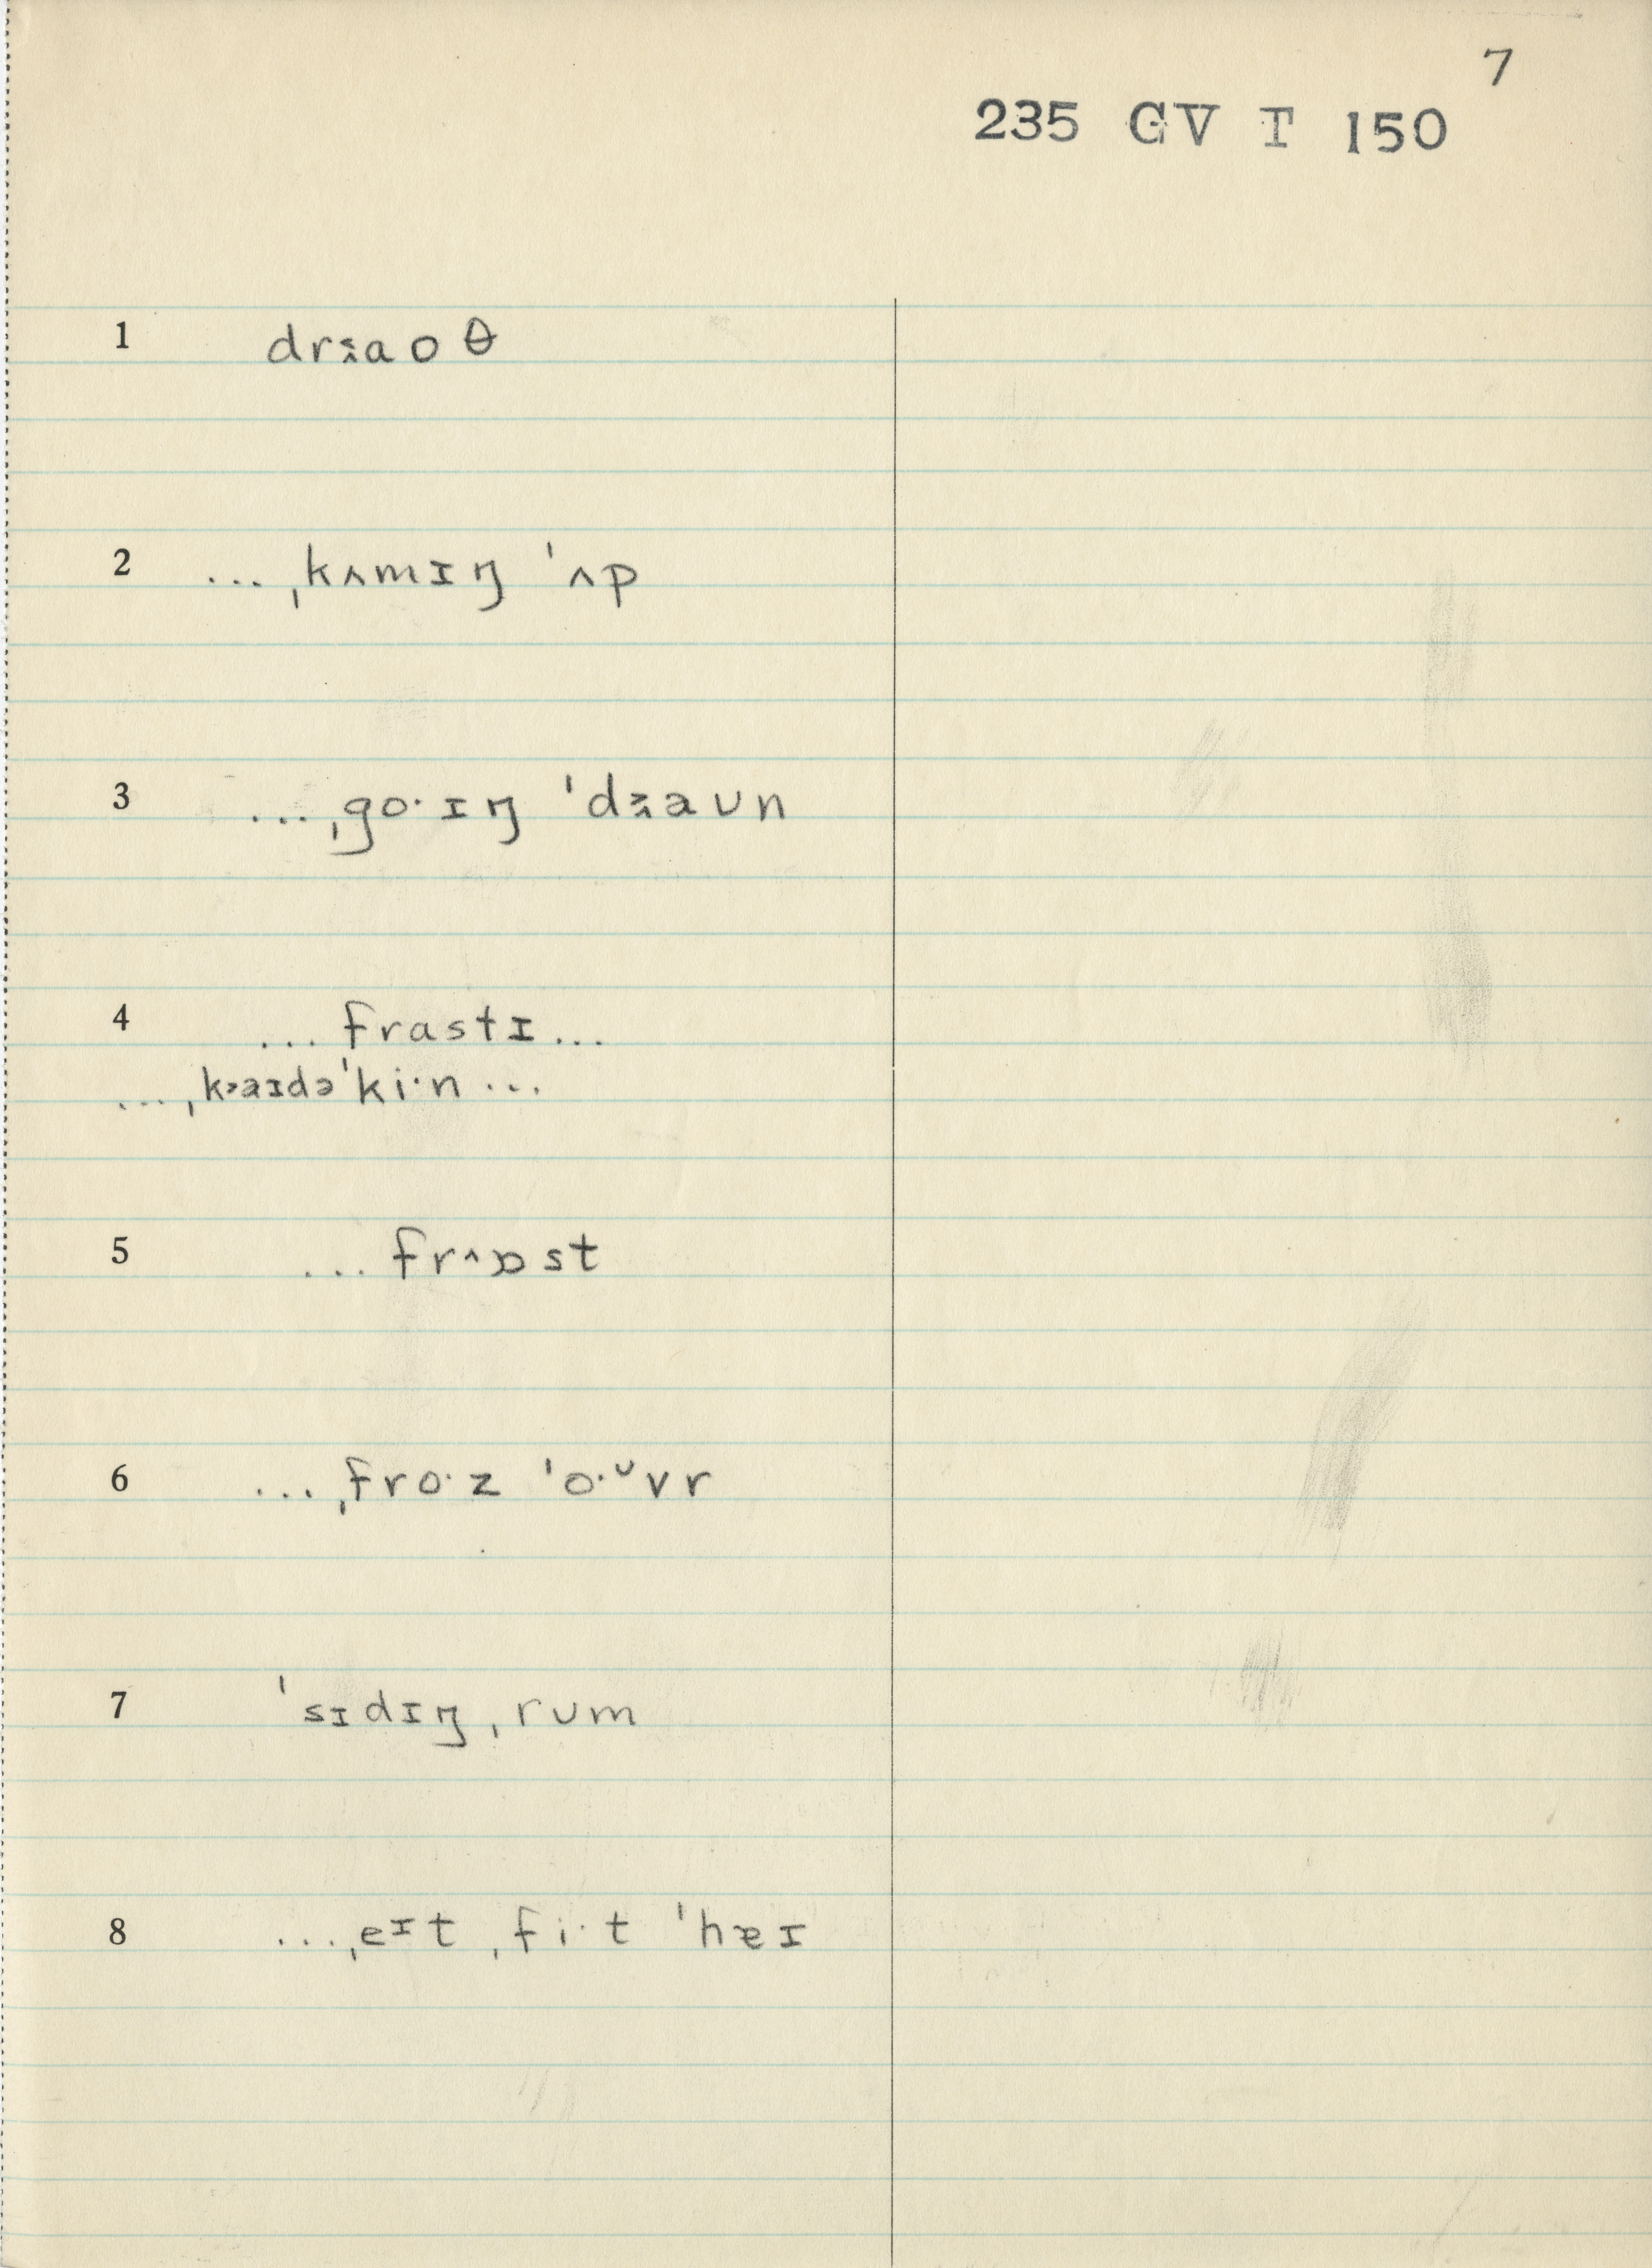 7
235 GV T 150
1 dr˰̭aoθ
2 ... ˌkʌmɪŋ ˈʌp
3 ... ˌgo·ɪŋ ˈd˲̭aᴜn
4 ... frastɪ ...
... ˌk˃aɪdəˈki·n ...
5 ... fr˄ɒst
6 ... ˌfro·z ˈo·ᶷvr
7 ˈsɪdɪŋ ˌrᴜm
8 ... ˌeᶦt ˌfi·t ˈhɐɪ